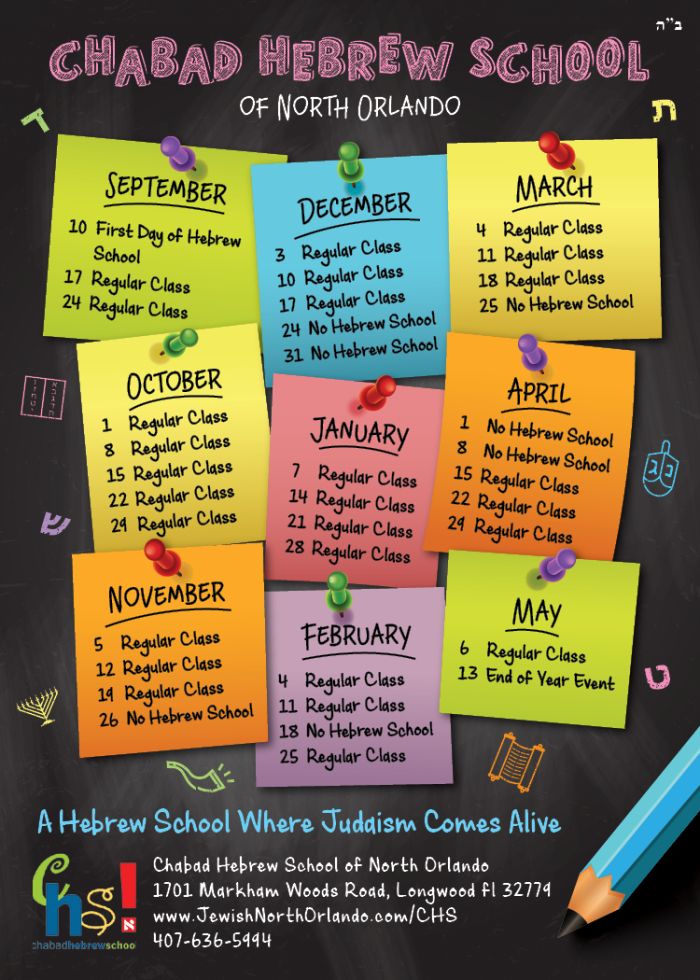 ב״ה
CHABAD HEBREW SCHOOL
OF NORTH ORLANDO
ד
ת
SEPTEMBER
10 First Day of Hebrew
School
17 Regular Class
24 Regular Class
DECEMBER
3 Regular Class
10 Regular Class
17 Regular Class
24 No Hebrew School
31 No Hebrew School
MARCH
4 Regular Class
11 Regular Class
18 Regular Class
25 No Hebrew School
OCTOBER
1 Regular Class
8 Regular Class
15 Regular Class
22 Regular Class
29 Regular Class
JANUARY
7 Regular Class
14 Regular Class
21 Regular Class
28 Regular Class
APRIL
1 No Hebrew School
8 No Hebrew School
15 Regular Class
22 Regular Class
29 Regular Class
ש
נ ג
NOVEMBER
5 Regular Class
12 Regular Class
19 Regular Class
26 No Hebrew School
FEBRUARY
4 Regular Class
11 Regular Class
18 No Hebrew School
25 Regular Class
MAY
6 Regular Class
13 End of Year Event
ט
A Hebrew School Where Judaism Comes Alive
chs!
א
chabadhebrewschool
Chabad Hebrew School of North Orlando
1701 Markham Woods Road, Longwood Fl 32779
www.JewishNorthOrlando.com/CHS
407-636-5994